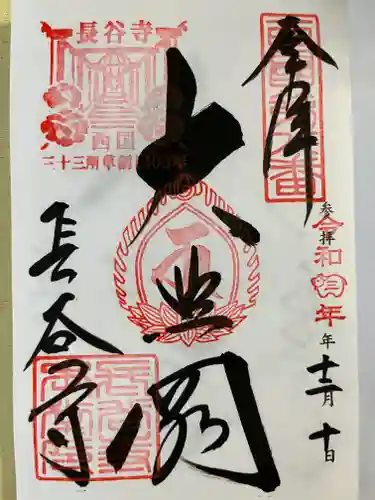 奉拝
西国第八番
参拝
令和
年
年十二月十日
大悲閣
長谷寺
長谷寺
西国
三十三所草創1300年